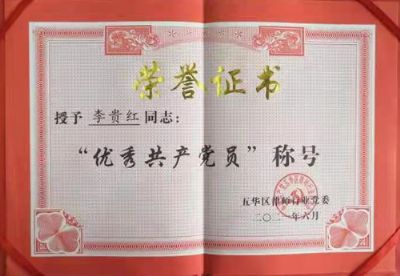 荣誉证书
授予 李贵红 同志:
“优秀共产党员”称号
五华区律师行业党委
二〇二一年六月